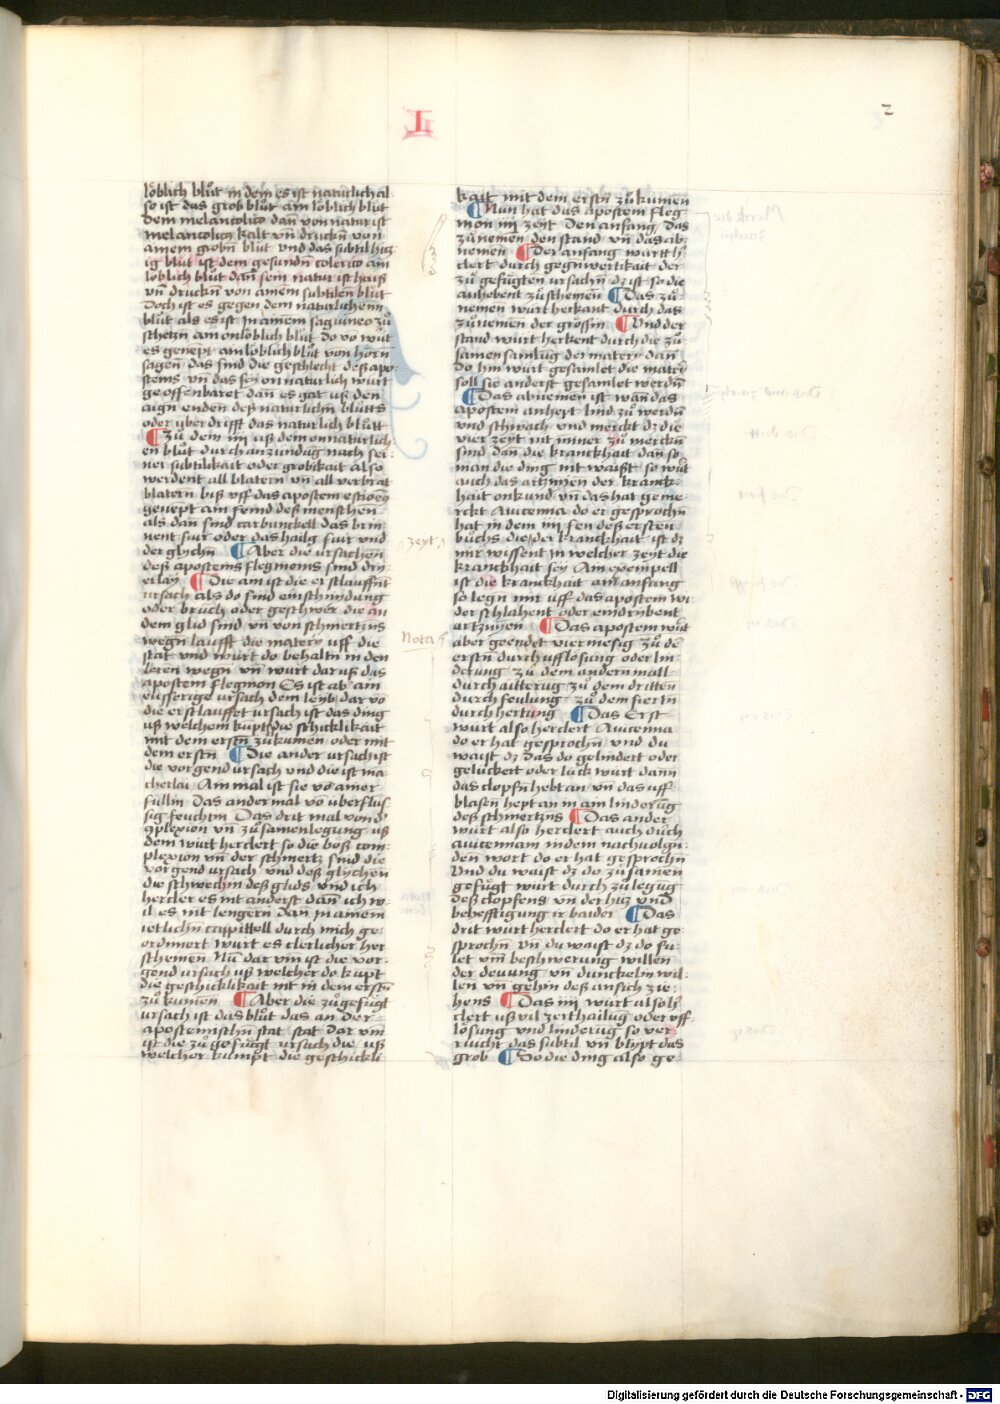 I
2
löblich blůt in dem es ist naturlich al-
so ist das grob blůt am löblich blůt
dem melancolico dañ von natur ist
melancolich kalt vñ druckñ von
amem grobñ blut vnd das subtil hitz
ig blůt ist dem gesundñ colerico ain
löblich blůt dañ sein natur ist haiß
vñ druckñ von amem subtilen blůt
Doch ist es gegen dem naturlichenn
blůt als es ist in amem saguineo zů
schetzñ am onlöblich blůt do vo wůt
es genept am löblich blůt von hörñ
sagen das sind die geschlecht deß apo
stems vñ das sey on naturlich wurt
geoffenbaret dañ es gat uß den
aign enden deß naturlichñ blůtts
oder überdrifft das naturlich blůtt
¶ Zů dem iiii uß dem onnaturlich
en blůt durch anzündung nach sei-
ner subtilikait oder grobikait also
werdent all blatern vñ all verbrät
blatern biß vff das apostem estiomeñ
genept am feind deß menschen
als dañ sind carbunckell das brin
nent fiur oder das hailg fiur vnd
der glychñ ¶ Aber die ursachen
deß apostems flegmonis sind dry
erlay ¶ Die ain ist die erstlauffñt
ursach als do sind einschnydung
oder bruch oder geschwer die an
dem glid sind vñ von schmertzñs
wegñ laufft die matery uff die
stat vnd wurt do behaltñ in den
leren wegñ vñ wurt daruß das
apostem flegmon Es ist ab ain
eusserige ursach dem leyb dar vo
die erst lauffet ursach ist das ding
uß welchem kupt die schicklikait
mit dem erstñ zůkumen oder mit
dem erstñ ¶ Die ander ursach ist
die vorgend ursach vnd die ist ma
cherlai Am mal ist sie vō amer
füllin Das ander mal vō überflüs
sig feuchtñ Das drit mal von d'
9plexion vñ zůsamenlegung uß
dem wurt herclert so die böß com-
plexion vñ der schmertz sind die
vorgend ursach vnd deß glychen
die schwechin deß glids vnd ich
hercler es nit anderst dañ ich w-
il es nit lengern dañ in amem
ietlichñ cappittell durch mich ge-
ordiniert wurt es clerlicher her
schemen Nů dar vm ist die vor-
gend ursach uß welcher do kupt
die geschicklikait nit in dem erstñ
zů kumen ¶ Aber die zůgefügt
ursach ist das blůt das an der
apostemischñ stat stat Dar vm
ist die zů gefügt ursach die uß
welcher kumpt die geschickli
zeyt
Nota
kait mit dem erstñ zů kumen
¶ Nun hat das apostem fleg
mon iiii zeyt Den anfang Das
zůnemen den stand vñ das ab-
nemen ¶ Der anfang wurt h'
clert durch gegnwertikait der
zů gefügten ursachñ dz ist so die
anhebent zů schemen ¶ Das zů
nemen wurt herkant durch das
zůnemen der grössin ¶ Und der
stand wurt herkent durch die zů
samen samlůg der matery dañ
do hin wurt gesamlet die matri
soll sie anderst gesamlet werdñ
¶ Das abnemen ist wañ das
apostem anhept lind zů werdñ
vnd schwach vnd merckt dz die
vier zeyt nit inner zů merckñ
sind dañ die kranckhait dañ so
man die ding nit waißt so wůt
auch das artznen der kranck-
hait onkund vñ das hat geme-
rckt Auicenna do er gesprochñ
hat in dem iiii fen deß ersten
bůchs die der kranckhait ist dz
wir wissent in welcher zeyt die
kranckhait sey Am exempell
ist die kranckhait am anfang
so legñ wir uff das apostem wi
der schlahent oder eindrybent
artznen ¶ Das apostem wůt
aber geendet viermesig zů dē
erstñ durch ufflösung oder lin
derung zů dem andern mall
durch aitterug zů dem dritten
durch feulung zů dem fierñ
durch hertung ¶ Das Erst
wurt also herclert Auicenna
do er hat gesprochñ vnd du
waist dz das do gelindert oder
gelückert oder lück wurt dann
das clopfñ hebt an vñ das uff
blasen hept an in am linderůg
deß schmertzñs ¶ Das ander
wurt also herclert auch duch
auicennam in dem nachuolgñ-
den wort do er hat gesprochñ
Und du waist dz do zůsamen
gefügt wurt durch zů legůg
deß clopfens vñ der hitz vnd
behefftigung ir baider ¶ Das
drit wurt herclert do er hat ge-
sprochñ vñ du waist dz do fu-
let vm beschwerung willen
der deuung vñ dunckelñ wil-
len vñ gehin deß ansich zie-
hens ¶ Das iiii wurt also h'
clert uß vil zerthailůg oder uff
lösung vnd linderůg so ver-
riucht das subtil vñ blypt das
grob ¶ So die ding also ge-
Digitalisierung gefördert durch die Deutsche Forschungsgemeinschaft - DFG